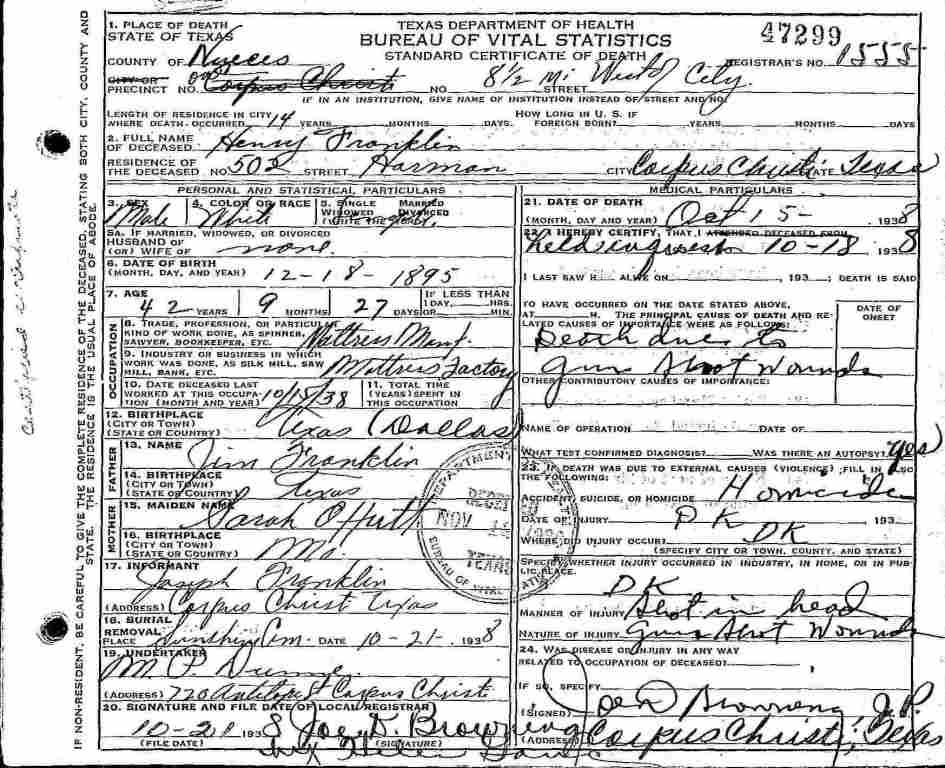 1. PLACE OF DEATH
STATE OF TEXAS
TEXAS DEPARTMENT OF HEALTH
BUREAU OF VITAL STATISTICS
STANDARD CERTIFICATE OF DEATH
47299
COUNTY OF Nueces
REGISTRAR'S NO. 1555
CITY OR
PRECINCT NO. Corpus Christi NO 8 1/2 Mi West of City STREET
IF IN AN INSTITUTION, GIVE NAME OF INSTITUTION INSTEAD OF STREET AND NO.
LENGTH OF RESIDENCE IN CITY
WHERE DEATH OCCURRED 14 YEARS MONTHS DAYS.
HOW LONG IN U. S. IF
FOREIGN BORN? YEARS MONTHS DAYS
2. FULL NAME
OF DECEASED Henry Franklin
RESIDENCE OF
THE DECEASED NO. 502 STREET Harman CITY Corpus Christi STATE Texas
PERSONAL AND STATISTICAL PARTICULARS
3. SEX Male
4. COLOR OR RACE White
5. SINGLE MARRIED
WIDOWED DIVORCED
(WRITE THE WORD)
5A. IF MARRIED, WIDOWED, OR DIVORCED
HUSBAND OF
(OR) WIFE OF none
6. DATE OF BIRTH
(MONTH, DAY, AND YEAR) 12-18-1895
7. AGE 42 YEARS 9 MONTHS 27 DAYS
IF LESS THAN
1 DAY, HRS.
OR MIN.
OCCUPATION
8. TRADE, PROFESSION, OR PARTICULAR
KIND OF WORK DONE, AS SPINNER,
SAWYER, BOOKKEEPER, ETC. Mattress Manf.
9. INDUSTRY OR BUSINESS IN WHICH
WORK WAS DONE, AS SILK MILL, SAW
MILL, BANK, ETC. Mattress Factory
10. DATE DECEASED LAST
WORKED AT THIS OCCUPATION
(MONTH AND YEAR) 10/15/38
11. TOTAL TIME
(YEARS) SPENT IN
THIS OCCUPATION
12. BIRTHPLACE
(CITY OR TOWN)
(STATE OR COUNTRY) Texas (Dallas)
FATHER
13. NAME Jim Franklin
14. BIRTHPLACE
(CITY OR TOWN)
(STATE OR COUNTRY) Texas
MOTHER
15. MAIDEN NAME Sarah Offutt
16. BIRTHPLACE
(CITY OR TOWN)
(STATE OR COUNTRY) Mo.
17. INFORMANT Joseph Franklin
(ADDRESS) Corpus Christ Texas
18. BURIAL
REMOVAL
PLACE Sunshine Cem DATE 10-21- 1938
19. UNDERTAKER
M. P.
(ADDRESS) 720 Antelope St Corpus Christi
20. SIGNATURE AND FILE DATE OF LOCAL REGISTRAR
10-21 1938 Joe D. Browning
(FILE DATE) (SIGNATURE)
MEDICAL PARTICULARS
21. DATE OF DEATH
(MONTH, DAY AND YEAR) Oct 15- 1938
22. I HEREBY CERTIFY, THAT I ATTENDED DECEASED FROM
held inquest 10-18 1938
I LAST SAW H ALIVE ON 193 ; DEATH IS SAID
TO HAVE OCCURRED ON THE DATE STATED ABOVE,
AT H. THE PRINCIPAL CAUSE OF DEATH AND RELATED CAUSES OF IMPORTANCE WERE AS FOLLOWS:
DATE OF
ONSET
Death due to
Gun Shot Wounds
OTHER CONTRIBUTORY CAUSES OF IMPORTANCE:
NAME OF OPERATION DATE OF
WHAT TEST CONFIRMED DIAGNOSIS? WAS THERE AN AUTOPSY? Yes
23. IF DEATH WAS DUE TO EXTERNAL CAUSES (VIOLENCE) FILL IN ALSO
THE FOLLOWING:
ACCIDENT, SUICIDE, OR HOMICIDE Homicide
DATE OF INJURY DK 193
WHERE DID INJURY OCCUR? DK
(SPECIFY CITY OR TOWN, COUNTY, AND STATE)
SPECIFY WHETHER INJURY OCCURRED IN INDUSTRY, IN HOME, OR IN PUBLIC PLACE.
DK
MANNER OF INJURY Shot in head
NATURE OF INJURY Gun Shot Wounds
24. WAS DISEASE OR INJURY IN ANY WAY
RELATED TO OCCUPATION OF DECEASED?
IF SO, SPECIFY
(SIGNED) Joe D Browning J.P.
(ADDRESS) Corpus Christi, Texas
IF NON-RESIDENT, BE CAREFUL TO GIVE THE COMPLETE RESIDENCE OF THE DECEASED, STATING BOTH CITY, COUNTY AND
STATE. THE RESIDENCE IS THE USUAL PLACE OF ABODE.